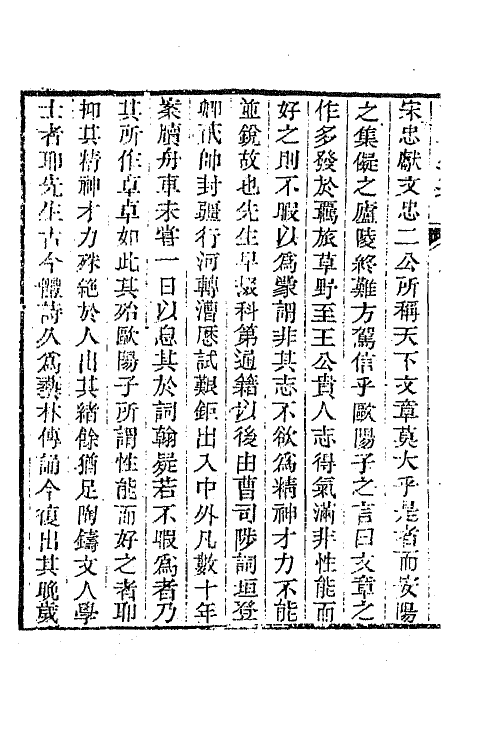 宋忠獻文忠二公所稱天下文章莫大乎是者而安陽
之集儗之廬陵終難方駕信乎歐陽子之言曰文章之
作多發於羈旅草野至王公貴人志得氣滿非性能而
好之則不暇以為蒙謂非其志不欲為精神才力不能
並銳故也先生早掇科第通籍以後由曹司陟詞垣登
卿貳帥封疆行河轉漕歷試艱鉅出入中外凡數十年
案牘舟車未嘗一日以息其於詞翰疑若不暇為者乃
其所作卓卓如此其殆歐陽子所謂性能而好之者耶
抑其精神才力殊絕於人出其緒餘猶足陶鑄文人學
士者耶先生古今體詩久為藝林傳誦今復出其晚歲